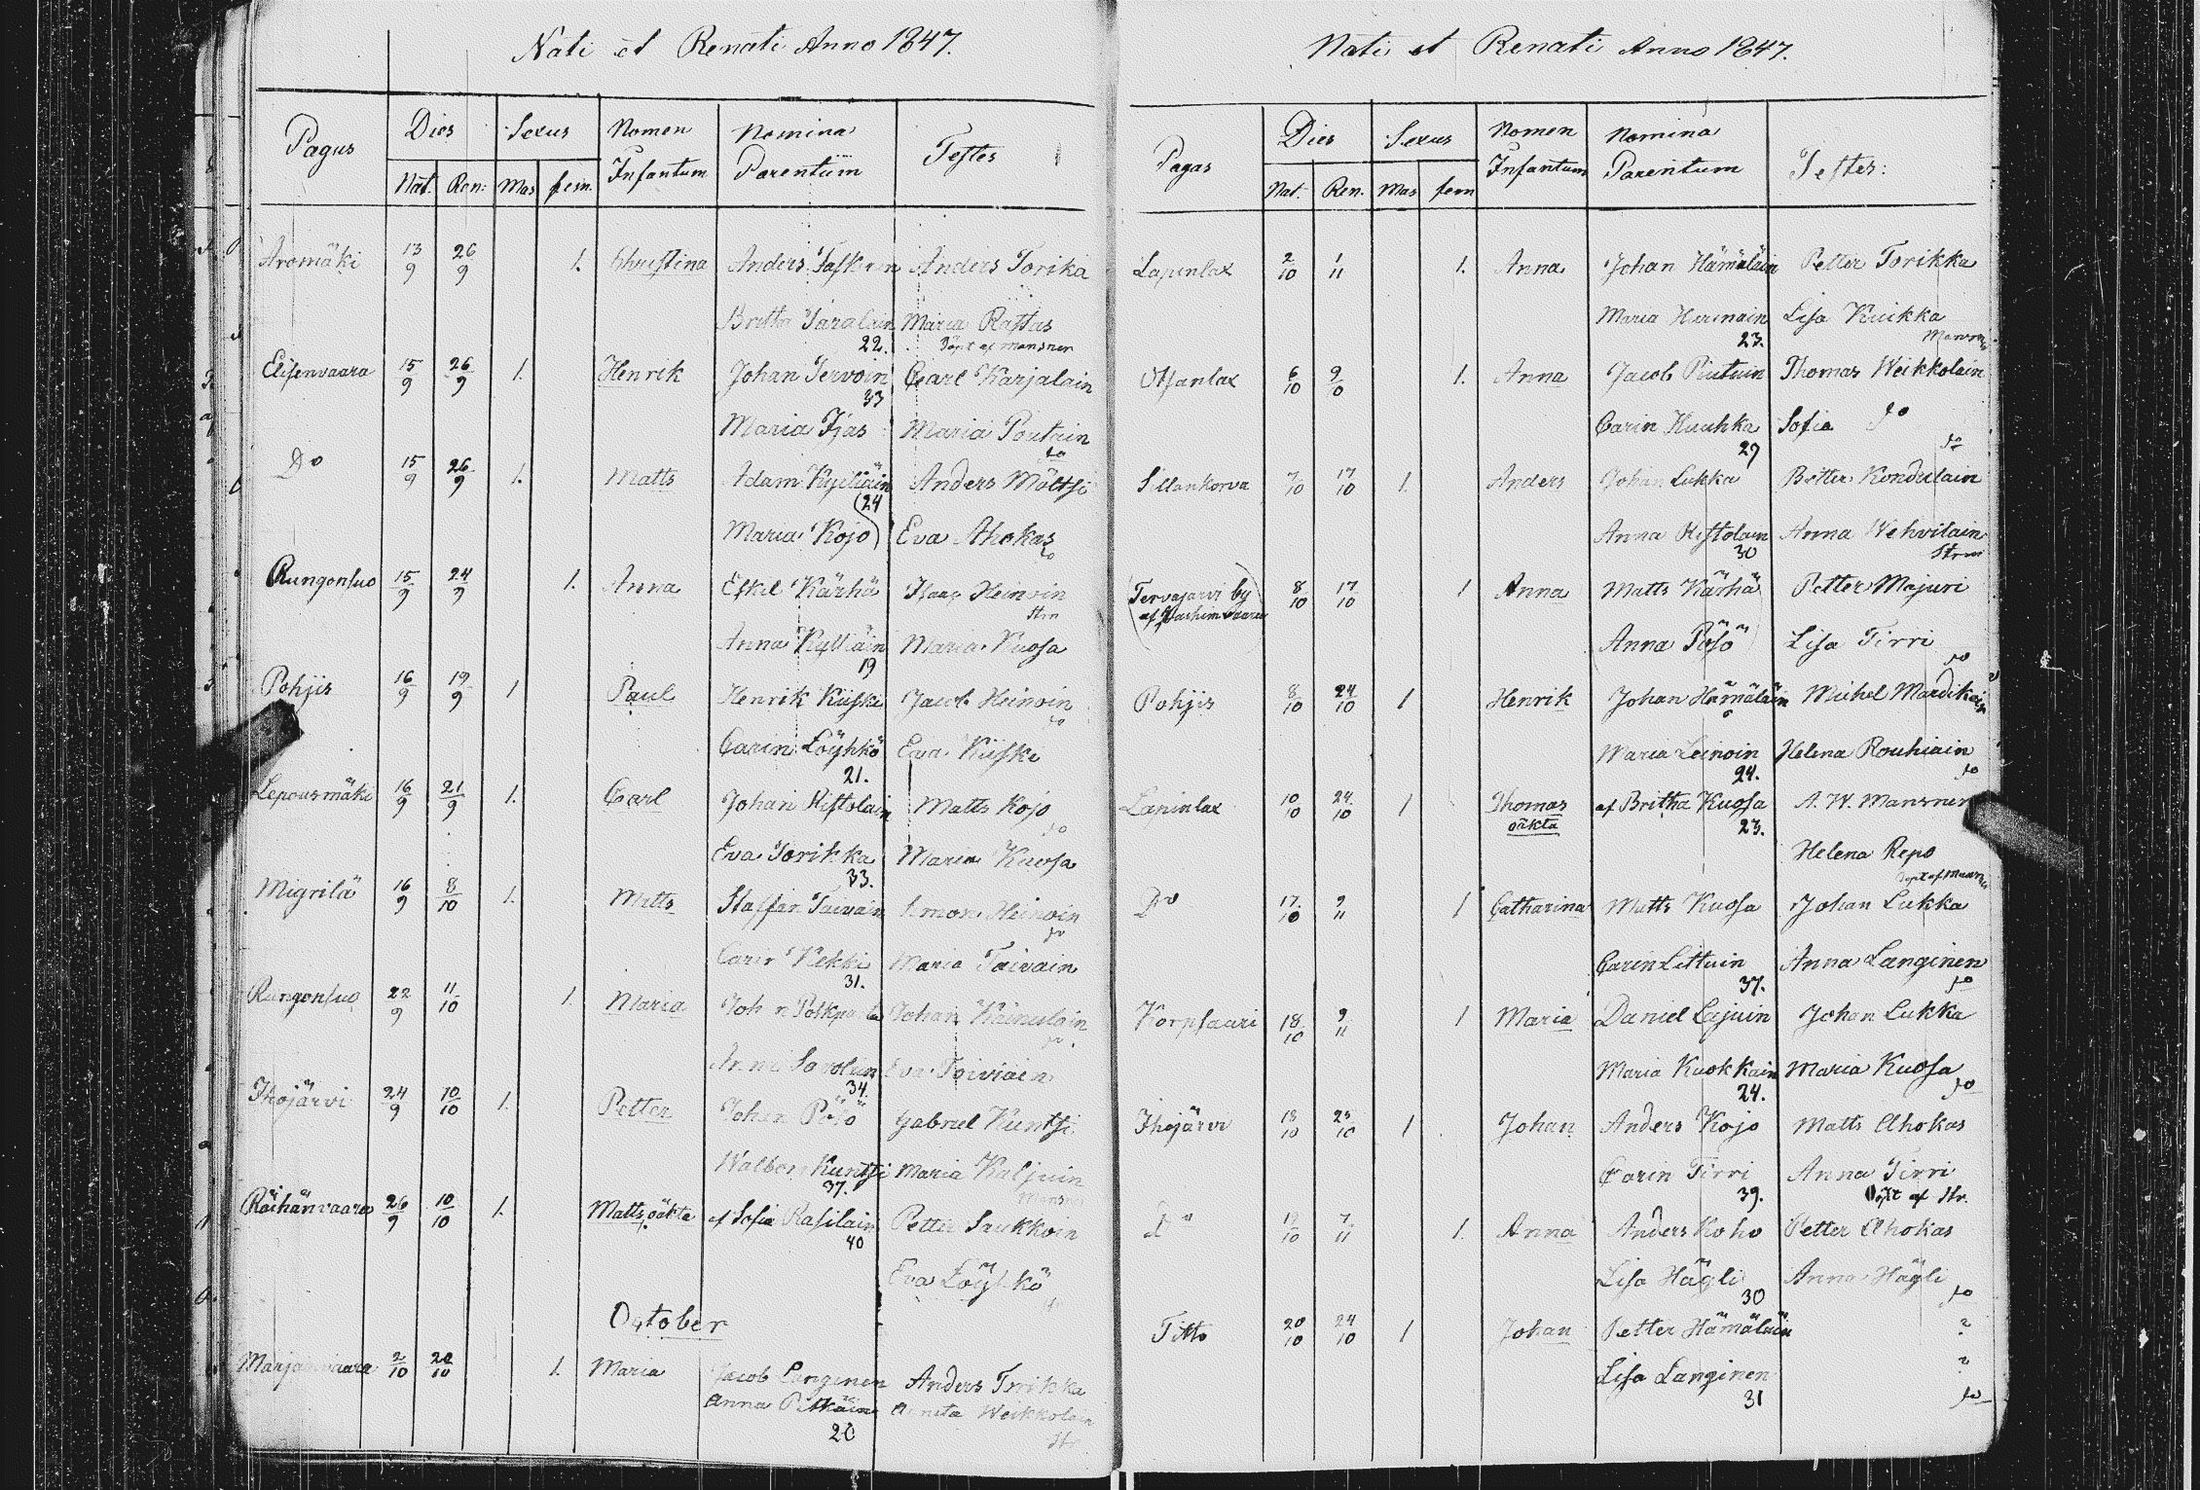 Nati et Renati Anno 1847.
Pagus Dies Sexus Nomen Infantum Nomina Parentum Testes
Nat. Ren: Mas fem.
Aromäki 13/9 26/9 1. Christina Anders Anders Torika
Britta Maria Rastas
22. Döpt af Mansner
Elisenvaara 15/9 26/9 1. Henrik Johan Tervoin Carl Karjalain
33
Maria Ijäs Maria Poutain
Do
Do 15/9 26/9 1. Matts Adam Kyiliäin Anders Möltsi
24
Maria Kojo Eva Ahokas
Do
Rungonsuo 15/9 24/9 1. Anna Eskel Kärhä Isaac Heinoin
Strn
Anna Kylliäin Maria Kuosa
19
Pohjis 16/9 19/9 1 Paul Henrik Kiiski Jacob Heinoin
Do
Carin Löyhkö Eva Kiiski
21.
Lepousmäki 16/9 21/9 1. Carl Johan Ristolain Matts Kojo
Do
Eva Torikka Maria Kuosa
33.
Migrilä 16/9 8/10 1. Matts Staffan Taivain Simon Heinoin
Do
Carin Kekki Maria Taivain
31.
Rungonsuo 22/9 11/10 1. Maria Johan Kainulain
Do.
Eva Toiviäin
34.
Ihojärvi 24/9 10/10 1. Petter Johan Pösö Gabriel Kuntsi
Walbor Kuntsi Maria Kaljuin
37. Mansner
Räihänvaara 26/9 10/10 1. Matts oäkta af Sofia Rasilain Petter Saukkoin
40
Eva Löyhkö
Do
October
Marjanvaara 2/10 20/10 1. Maria Jacob Langinen Anders Torikka
Anna Pitkäin Agneta Weikkolain
20 Str
Nati et Renati Anno 1847.
Pagas Dies Sexus Nomen Infantum Nomina Parentum Testes:
Nat. Ren. Mas fem
Lapinlax 2/10 1/11 1. Anna Johan Hämäläin Petter Torikka
Maria Lisa Kuikka
23. Mansner
Otsanlax 6/10 9/0 1. Anna Jacob Thomas Weikkolain
Carin Kuuhka Sofia Do
29 Do
Sillankorva 7/10 17/10 1. Anders Johan Lukka Petter Kondulain
Anna Ristolain Anna Wehvilain
30 Strn
Tervajarvi by 8/10 17/10 1 Anna Matts Kärhä Petter Majuri
Anna Pösö Lisa Tirri
Do
Pohjis 8/10 24/10 1 Henrik Johan Hämäläin Michel Mardikain
Maria Leinoin Helena Rouhiain
24. Do
Lapinlax 10/10 24/10 1 Thomas af Britha Kuosa A. W. Mansner
oäkta 23.
Helena Repo
Döpt af Mansner
Do 17/10 9/11 1 Catharina Matts Kuosa Johan Lukka
Carin Littuin Anna Langinen
37. Do
Korpsaari 18/10 9/11 1 Maria Daniel Lajuin Johan Lukka
Maria Kuokkain Maria Kuosa
24. Do
Ihojärvi 18/10 1 Johan Anders Kojo Matts Ahokas
Carin Tirri Anna Tirri
39. Döpt af Str.
Do 19/10 7/11 1. Anna Anders Koho Petter Ahokas
Lisa Hägli Anna Hägli
30 Do
Titto 20/10 24/10 1 Johan Petter Hämäläin ?
Lisa Langinen ?
31 Do